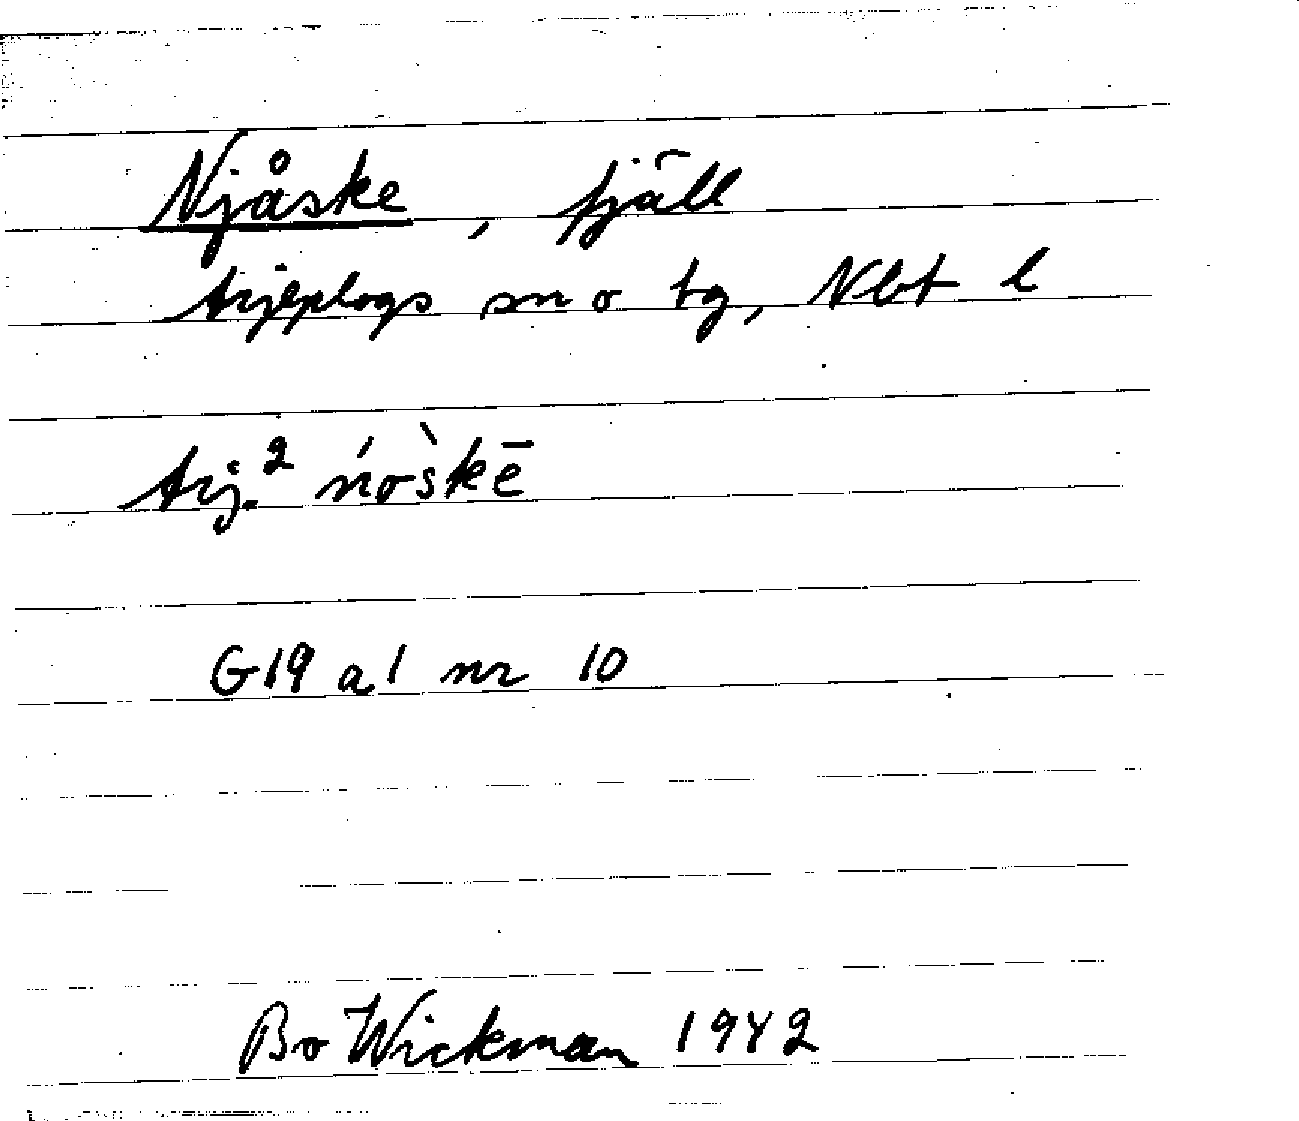 Njåske, fjäll
Arjeplogs sn o tg, Nbt l
Arj.² ńos̀kē
G19 a1 nr 10
Bo Wickman 1942